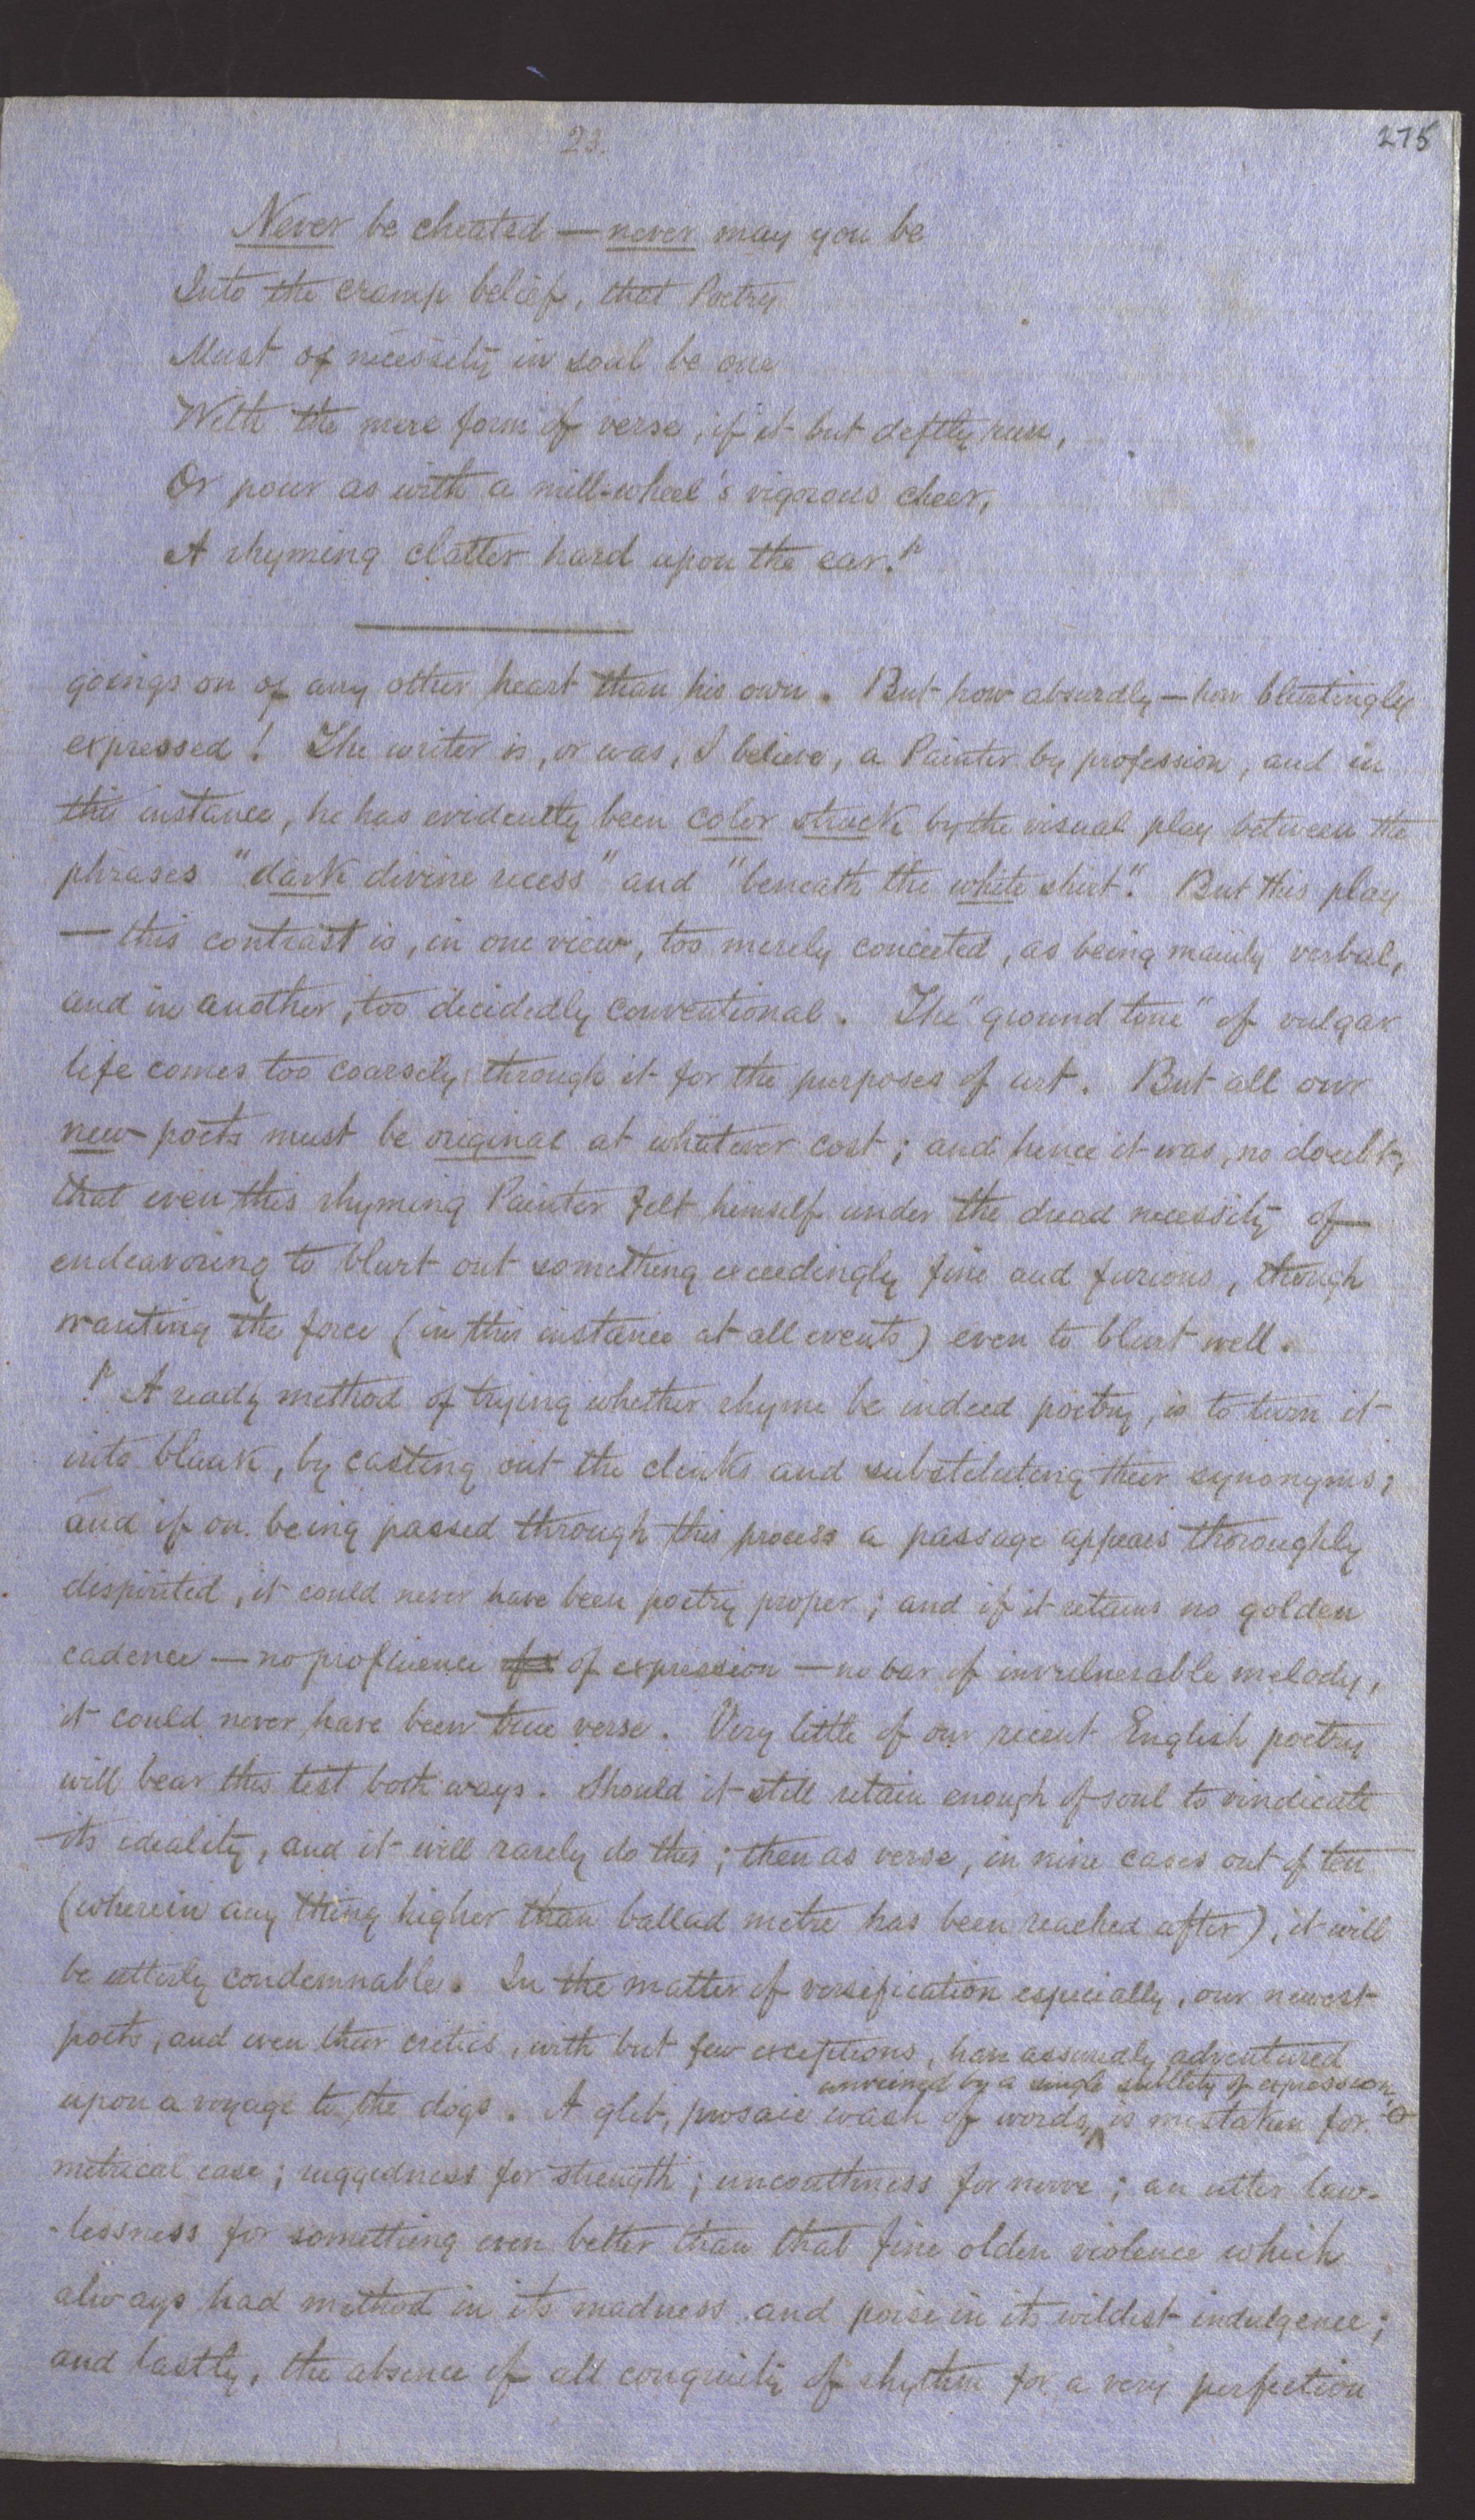 23.
275
Never be cheated — never may you be
Into the cramp belief, that Poetry
Must of necessity in soul be one
With the mere form of verse, if it but deftly run,
Or pour as with a mill-wheel's vigorous cheer,
A rhyming clatter hard upon the ear.
goings on of any other heart than his own. But how absurdly — how blurtingly
expressed! The writer is, or was, I believe, a Painter by profession, and in
this instance, he has evidently been color struck by the visual play between the
phrases "dark divine recess" and "beneath the white shirt". But this play
— this contrast is, in one view, too merely conceited, as being mainly verbal,
and in another, too decidedly conventional. The "ground tone" of vulgar
life comes too coarsely through it for the purposes of art. But all our
new poets must be original at whatever cost; and hence it was, no doubt,
that even this rhyming Painter felt himself under the dread necessity of
endeavoring to blurt out something exceedingly fine and furious, though
wanting the force (in this instance at all events) even to blurt well.
A ready method of trying whether rhyme be indeed poetry, is to turn it
into blank, by casting out the clinks and substituting their synonyms;
and if on being passed through this process a passage appears thoroughly
dispirited, it could never have been poetry proper; and if it retains no golden
cadence — no profluence of expression — no bar of invulnerable melody,
it could never have been true verse. Very little of our recent English poetry
will bear this test both ways. Should it still retain enough of soul to vindicate
its ideality, and it will rarely do this; then as verse, in nine cases out of ten
(wherein any thing higher than ballad metre has been reached after), it will
be utterly condemnable. In the matter of versification especially, our newest
poets, and even their critics, with but few exceptions, have assuredly adventured
unveined by a single subtlety of expression,
upon a voyage to the dogs. A glib, prosaic wash of words, is mistaken for
metrical ease; ruggedness for strength; uncouthness for nerve; an utter law-
-lessness for something even better than that fine olden violence which
always had method in its madness and poise in its wildest indulgence;
and lastly, the absence of all congruity of rhythm for a very perfection